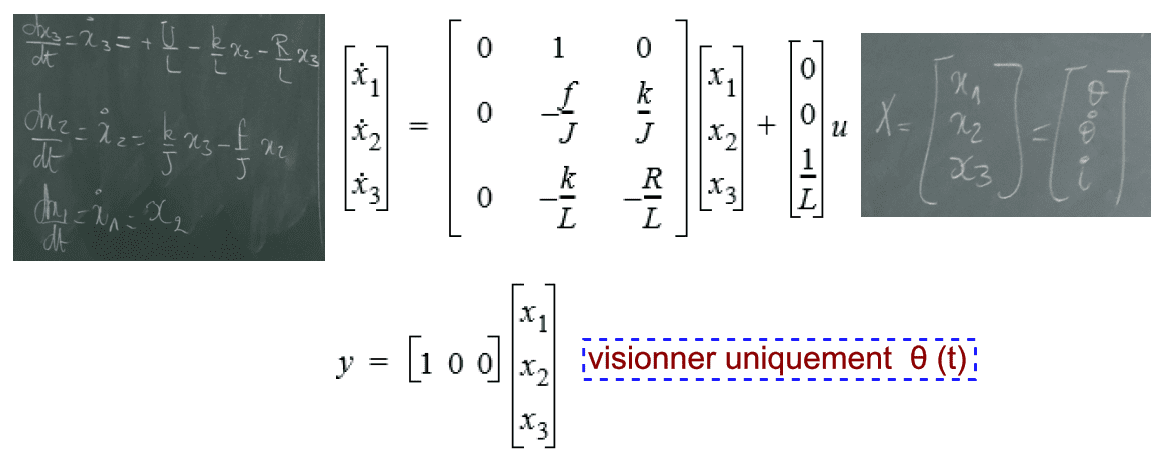 dx₃/dt = ẋ₃ = + U/L - k/L x₂ - R/L x₃
dx₂/dt = ẋ₂ = k/J x₃ - f/J x₂
dx₁/dt = ẋ₁ = x₂
[ẋ₁ ẋ₂ ẋ₃] = [0 1 0; 0 -f/J k/J; 0 -k/L -R/L] [x₁ x₂ x₃] + [0 0 1/L] u
X = [x₁ x₂ x₃] = [θ θ̇ i]
y = [1 0 0] [x₁ x₂ x₃]
visionner uniquement θ (t)